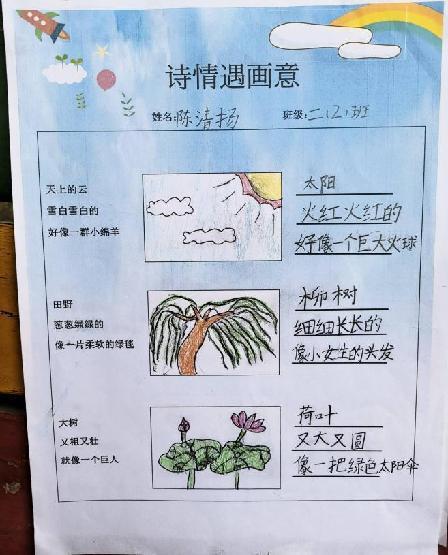 诗情遇画意
姓名:陈清扬 班级:二(2)班
天上的云
雪白雪白的
好像一群小绵羊
太阳
火红火红的
好像一个巨大火球
田野
葱葱绿绿的
像一片柔软的绿毯
柳树
细细长长的
像小女生的头发
大树
又粗又壮
就像一个巨人
荷叶
又大又圆
像一把绿色太阳伞